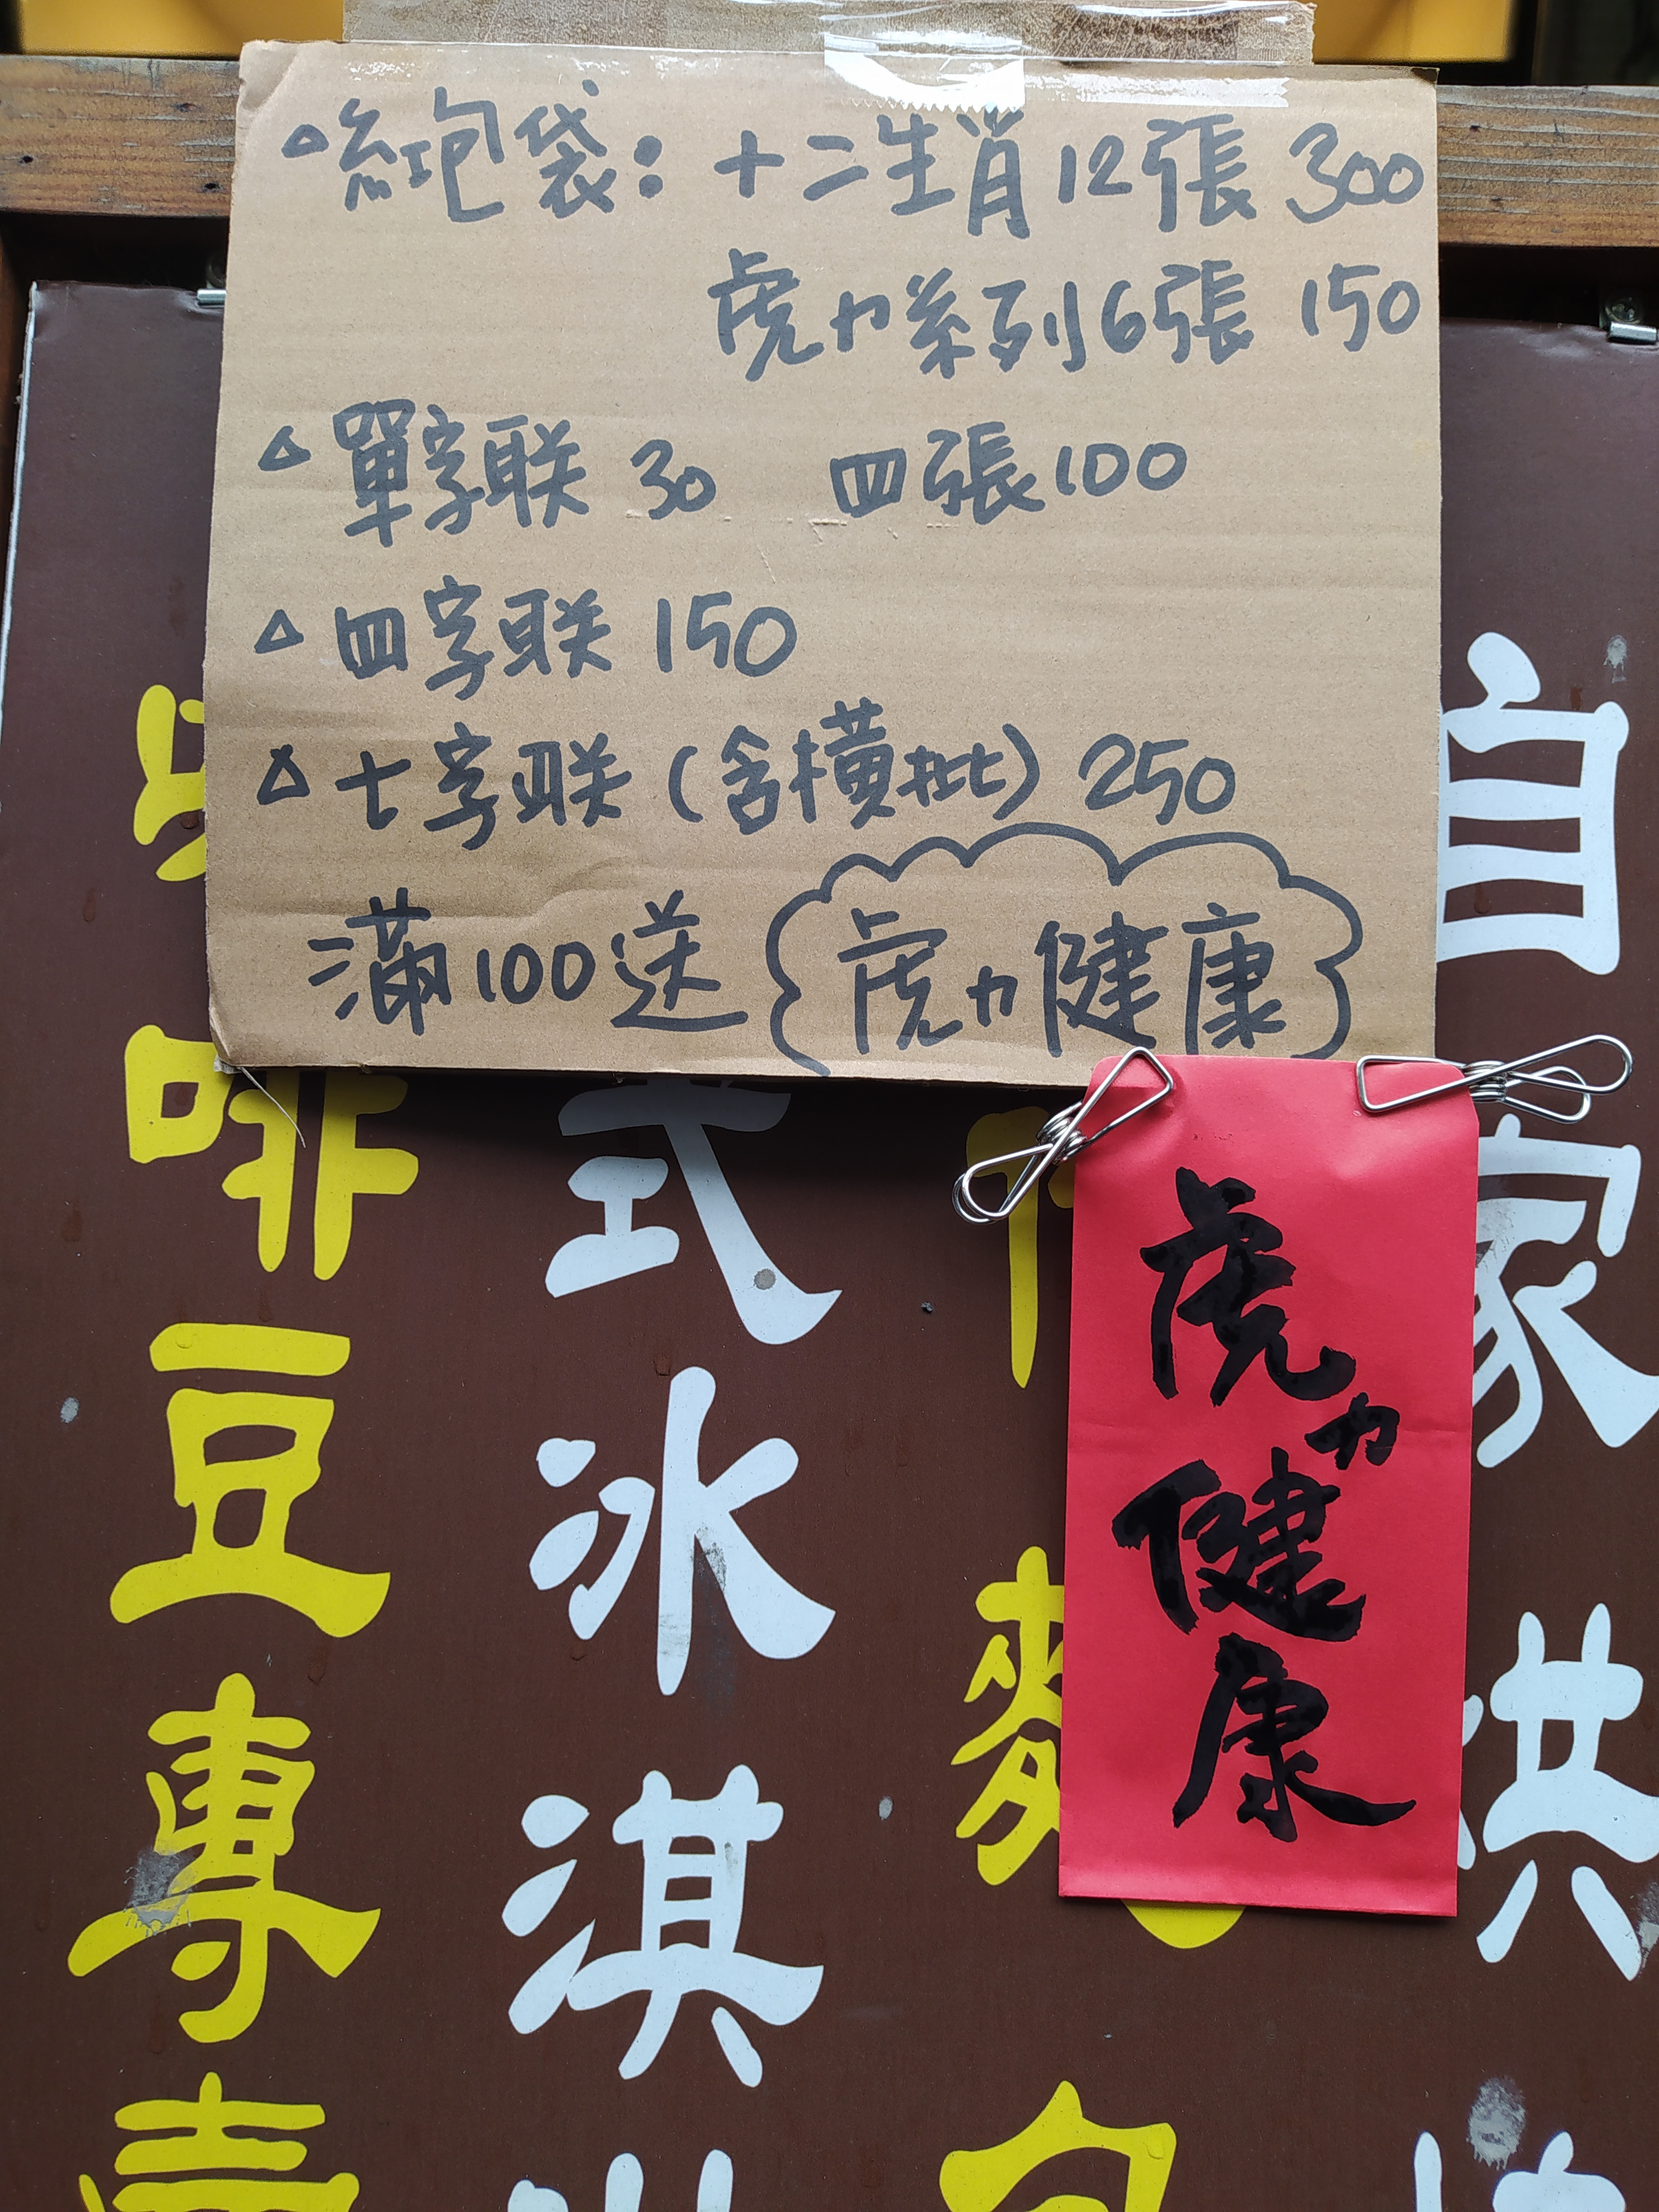 △紅包袋：十二生肖12張 300
虎力系列6張 150
△單字联 30 四張100
△四字联 150
△七字联（含横批）250
滿100送 虎力健康
虎力健康
自家烘
麵包
式冰淇淋
啡豆專賣